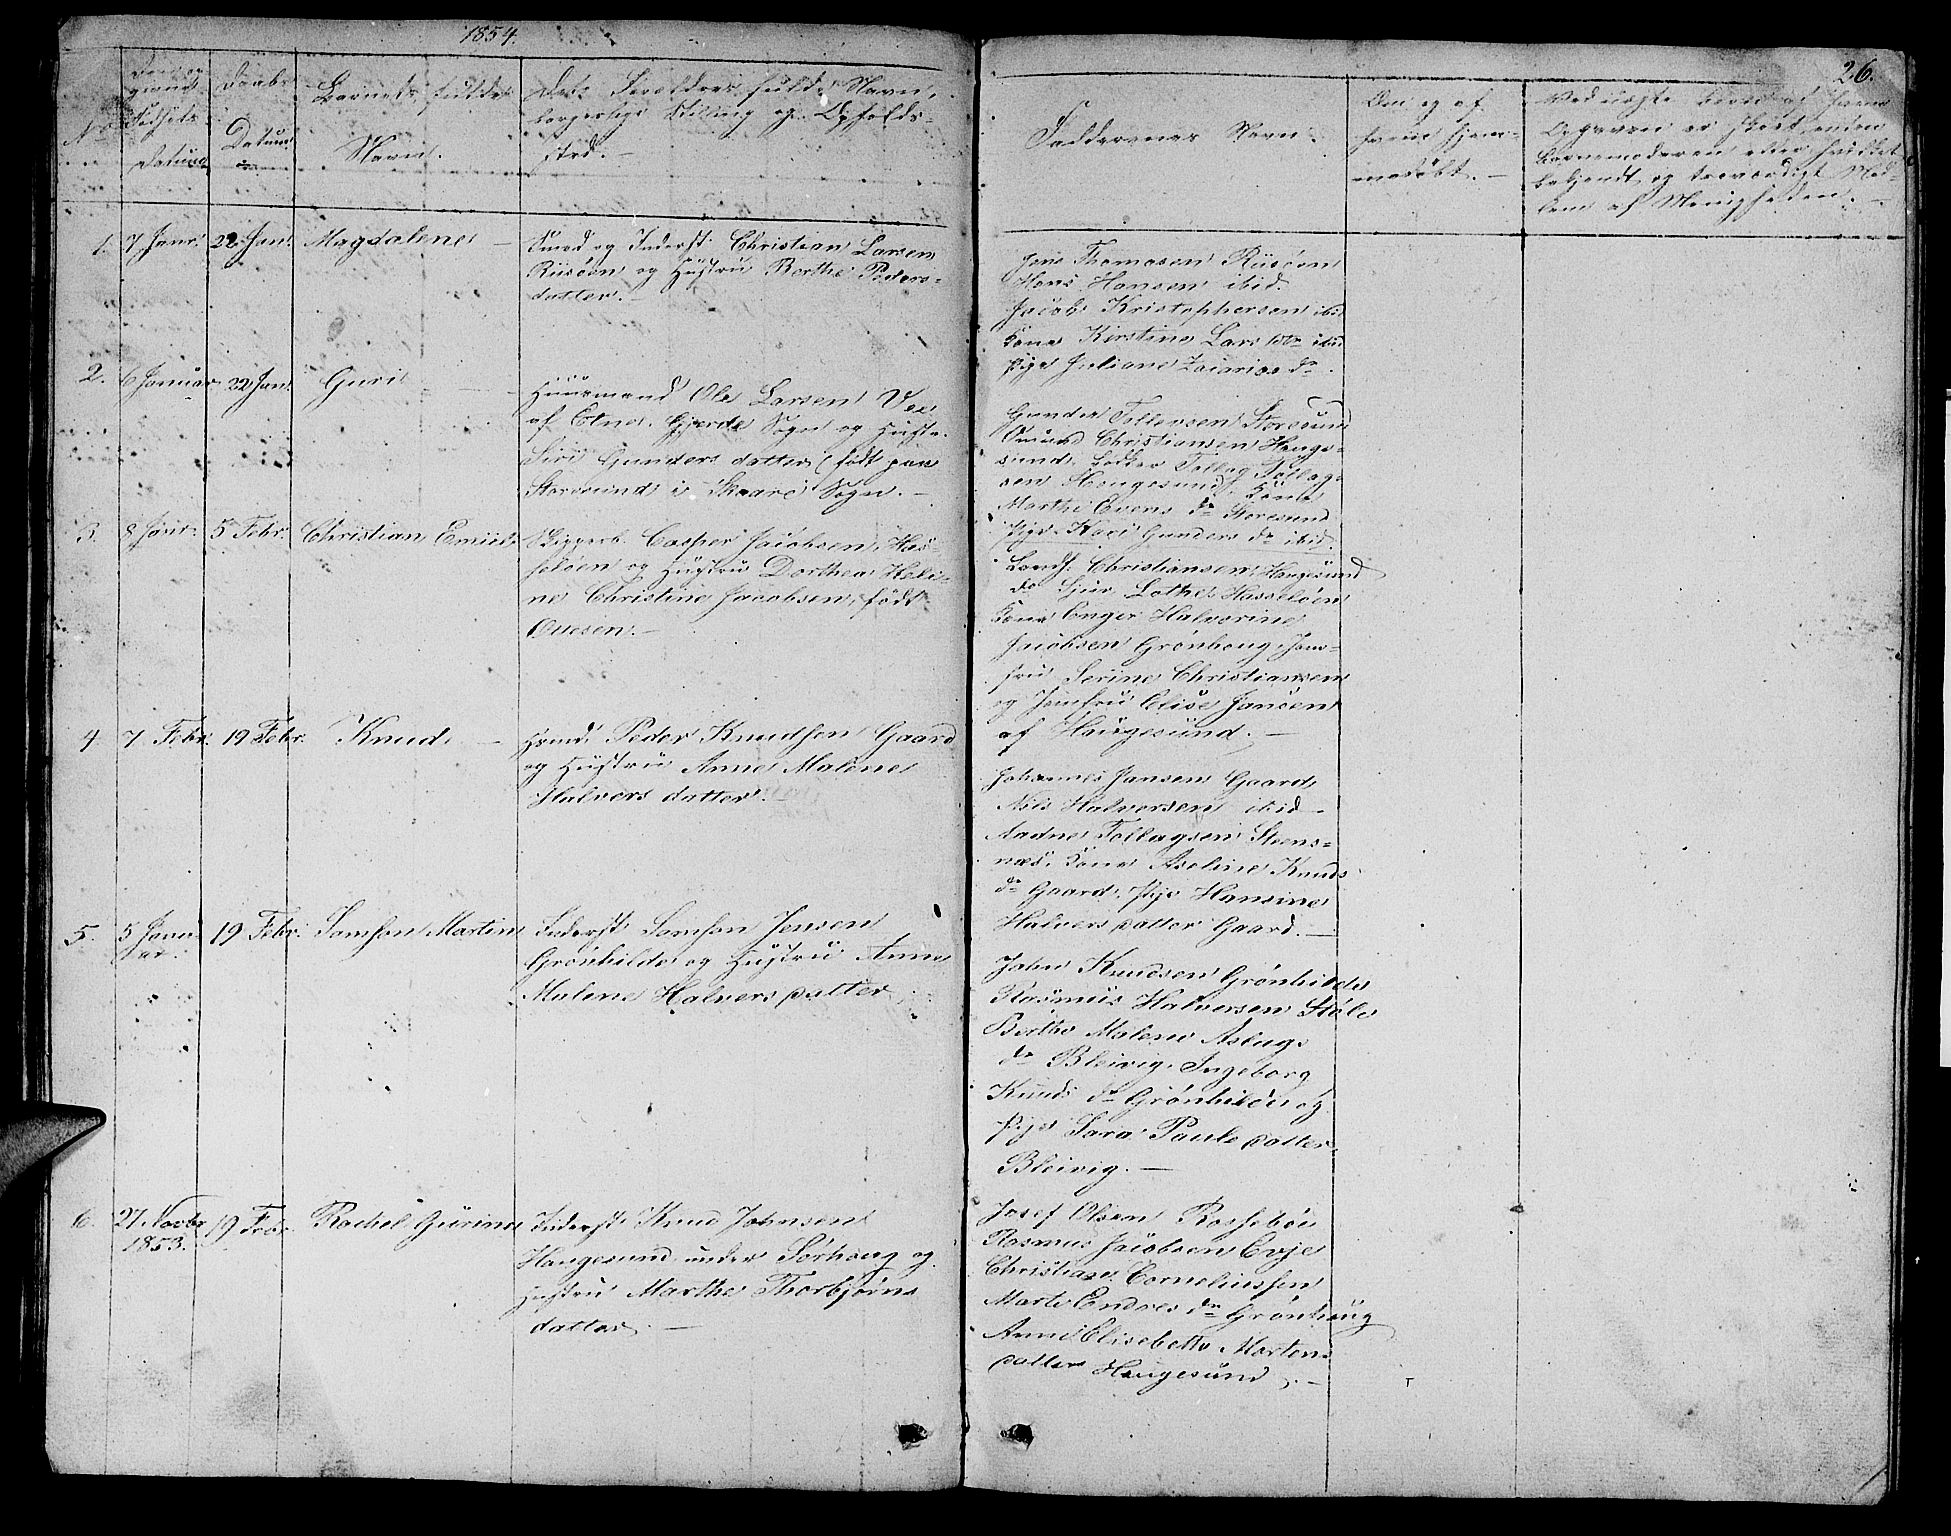 1854.
26.
No
Dag og
Fødsels
Datum
Daabs
Datum
Barnets fulde
Navn.
Dets Forældres fulde Navn,
borgerlige Stilling og Opholds-
sted.
Faddernes Navn.
Om og af
hvem hjem-
medøbt.
1. 7 Janr. 22 Jan. Magdalene
Smed og Inderst Christian Larsen
Risøen og Hustru Berthe Peders-
datter.
Jens Thomasen Risøen
Hans Hansen ibid.
Jacob Kristophersen ibid
Kone Kirstine Lars Dtr ibid
Pige Juliane
2. 6 Januar 22 Jan. Guri
Huusmand Ole Larsen
af Etne, Gjerde Sogn og Hustr.
Siri Gunders datter (født paa
Storesund i Skaare Sogn.
Gunder Tollevsen Storesund
Christiansen Hauge-
sund,
sen Haugesund, Kone
Marthe Evens dr Storesund
Pige Kari Gunders dr ibid.
3. 8 Janr. 5 Febr. Christian Emiil
Skipper Casper Jacobsen, Has-
seløen og Hustru Dorthea Heli-
ne Christine Jacobsen, født
Ovesen.
Christiansen Haugesund
do Sjur Lothe Hasseløen
Kone Enger Halvorine
Jacobsen Grønhoug, Jom-
fru Serine Christiansen
og Jomfru Elise Jansen
af Haugesund.
4. 7 Febr. 19 Febr. Knud
Peder Knudsen Gaard
og Hustru Anne Malene
Halvers datter.
Johannes Jansen Gaard
Nils Halvorsen ibid
Aadne Tollagsen Steens-
næs, Kone Aseline Knuds
dr Gaard, Pige Hansine
Halvers datter Gaard.
5. 5 Janu-
ar. 19 Febr. Samson Martin
Inderst Samson Jensen
Grønhilde og Hustru Anne
Malene Halvers datter
John Knudsen Grønhilde
Rasmus Halvorsen Støle
Berthe Malene Aslags
dr Bleivig, Ingeborg
Knuds dr Grønhilde og
Pige Sara Pauls datter
Bleivig.
6. 27 Novbr
1853. 19 Febr. Rachel Gurine
Inderst Knud Johnsen
Haugesund under Sørhaug og
Hustru Marthe Thorbjørns
datter.
Josef Olsen Rossebøe
Rasmus Jacobsen Evje
Christian Corneliussen
Marte Endres dr Grønhaug
Anne Elisebette Mortens
datter Haugesund.